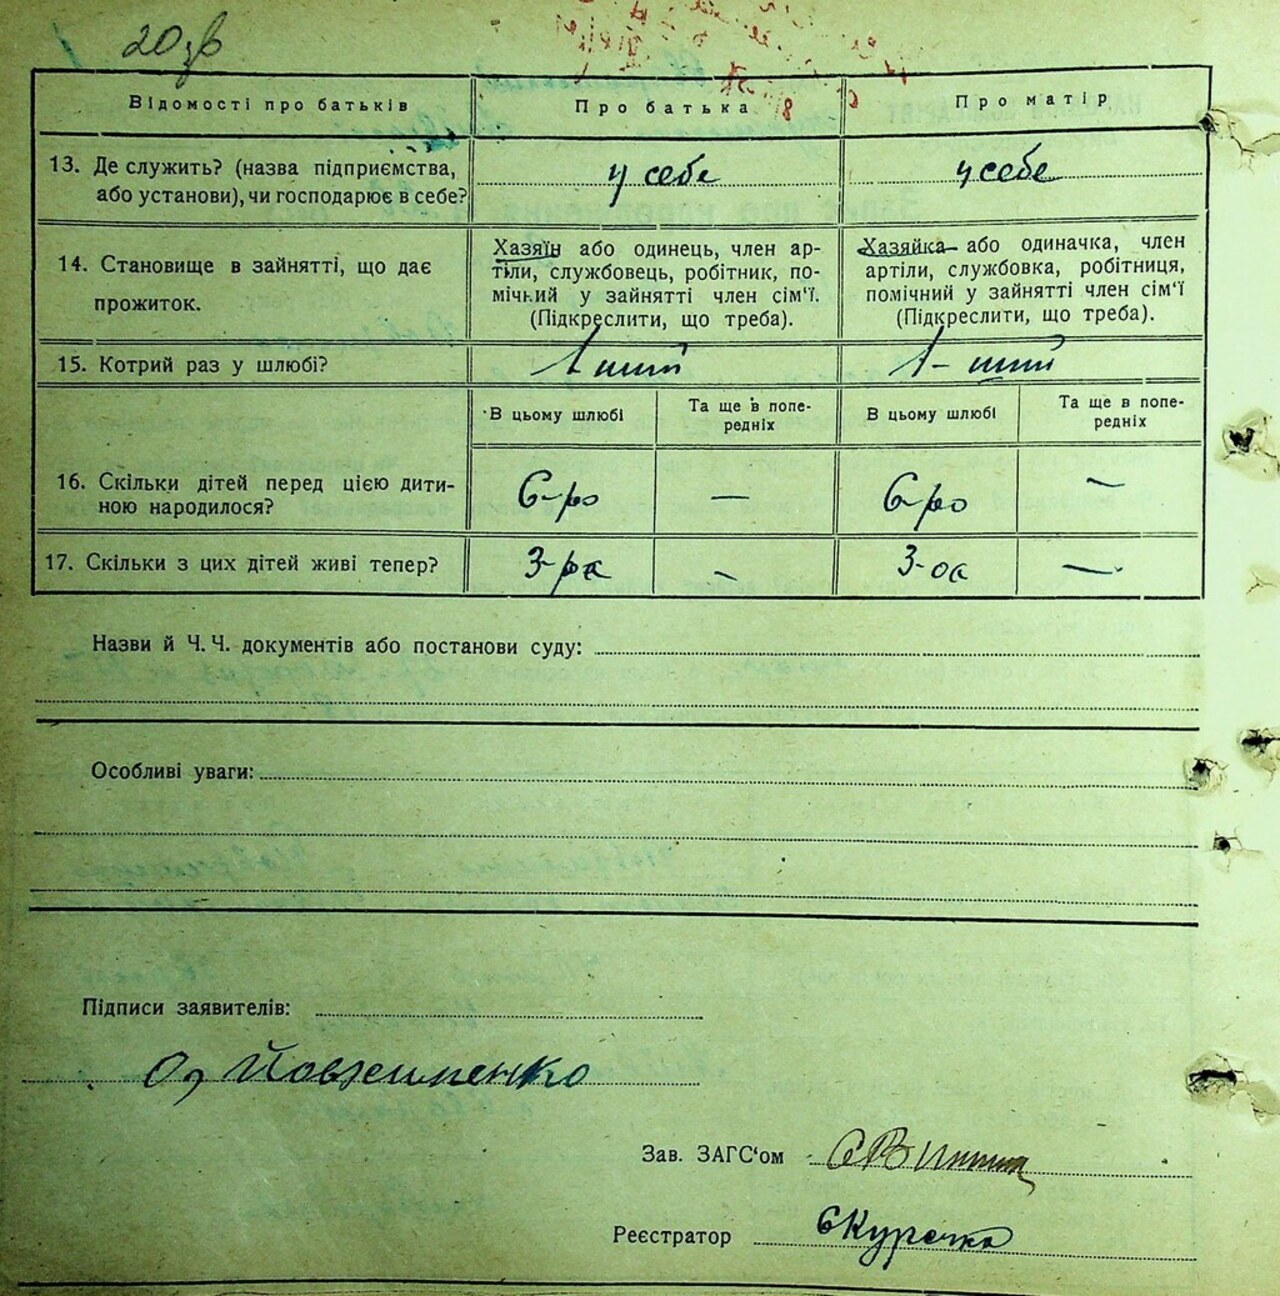 20 зв
Відомості про батьків
Про батька
Про матір
13. Де служить? (назва підприємства,
або установи), чи господарює в себе?
у себе
у себе
14. Становище в зайнятті, що дає
прожиток.
Хазяїн або одинець, член ар-
тіли, службовець, робітник, по-
мічний у зайнятті член сім'ї.
(Підкреслити, що треба).
Хазяйка або одиначка, член
артіли, службовка, робітниця,
помічний у зайнятті член сім'ї
(Підкреслити, що треба).
15. Котрий раз у шлюбі?
1 ший
1-ший
В цьому шлюбі
Та ще в попе-
редніх
В цьому шлюбі
Та ще в попе-
редніх
16. Скільки дітей перед цією дити-
ною народилося?
6-ро
—
6-ро
—
17. Скільки з цих дітей живі тепер?
3-ра
—
3-ос
—
Назви й Ч. Ч. документів або постанови суду:
Особливі уваги:
Підписи заявителів:
Зав. ЗАГС'ом
Реєстратор
ЄКурочка